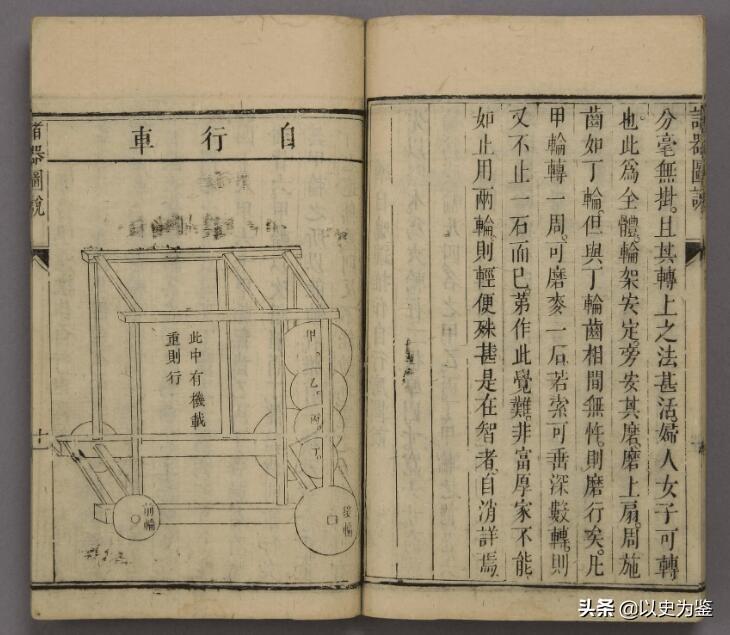 諸器圖說
分毫無掛。且其轉上之法甚活。婦人女子可轉
也。此為全體。輪架安定。旁安其磨。磨上扇。周施
齒如丁輪。但與丁輪齒相間無忤。則磨行矣。凡
甲輪轉一周。可磨麥一石。若索可垂深數轉。則
又不止一石而已。第作此覺難。非富厚家不能
如止用兩輪。則輕便殊甚。是在智者。自消詳焉
自行車
此中有機載
重則行
甲
乙
丙
丁
前輪
後輪
諸器圖說
十
头条 @以史为鉴